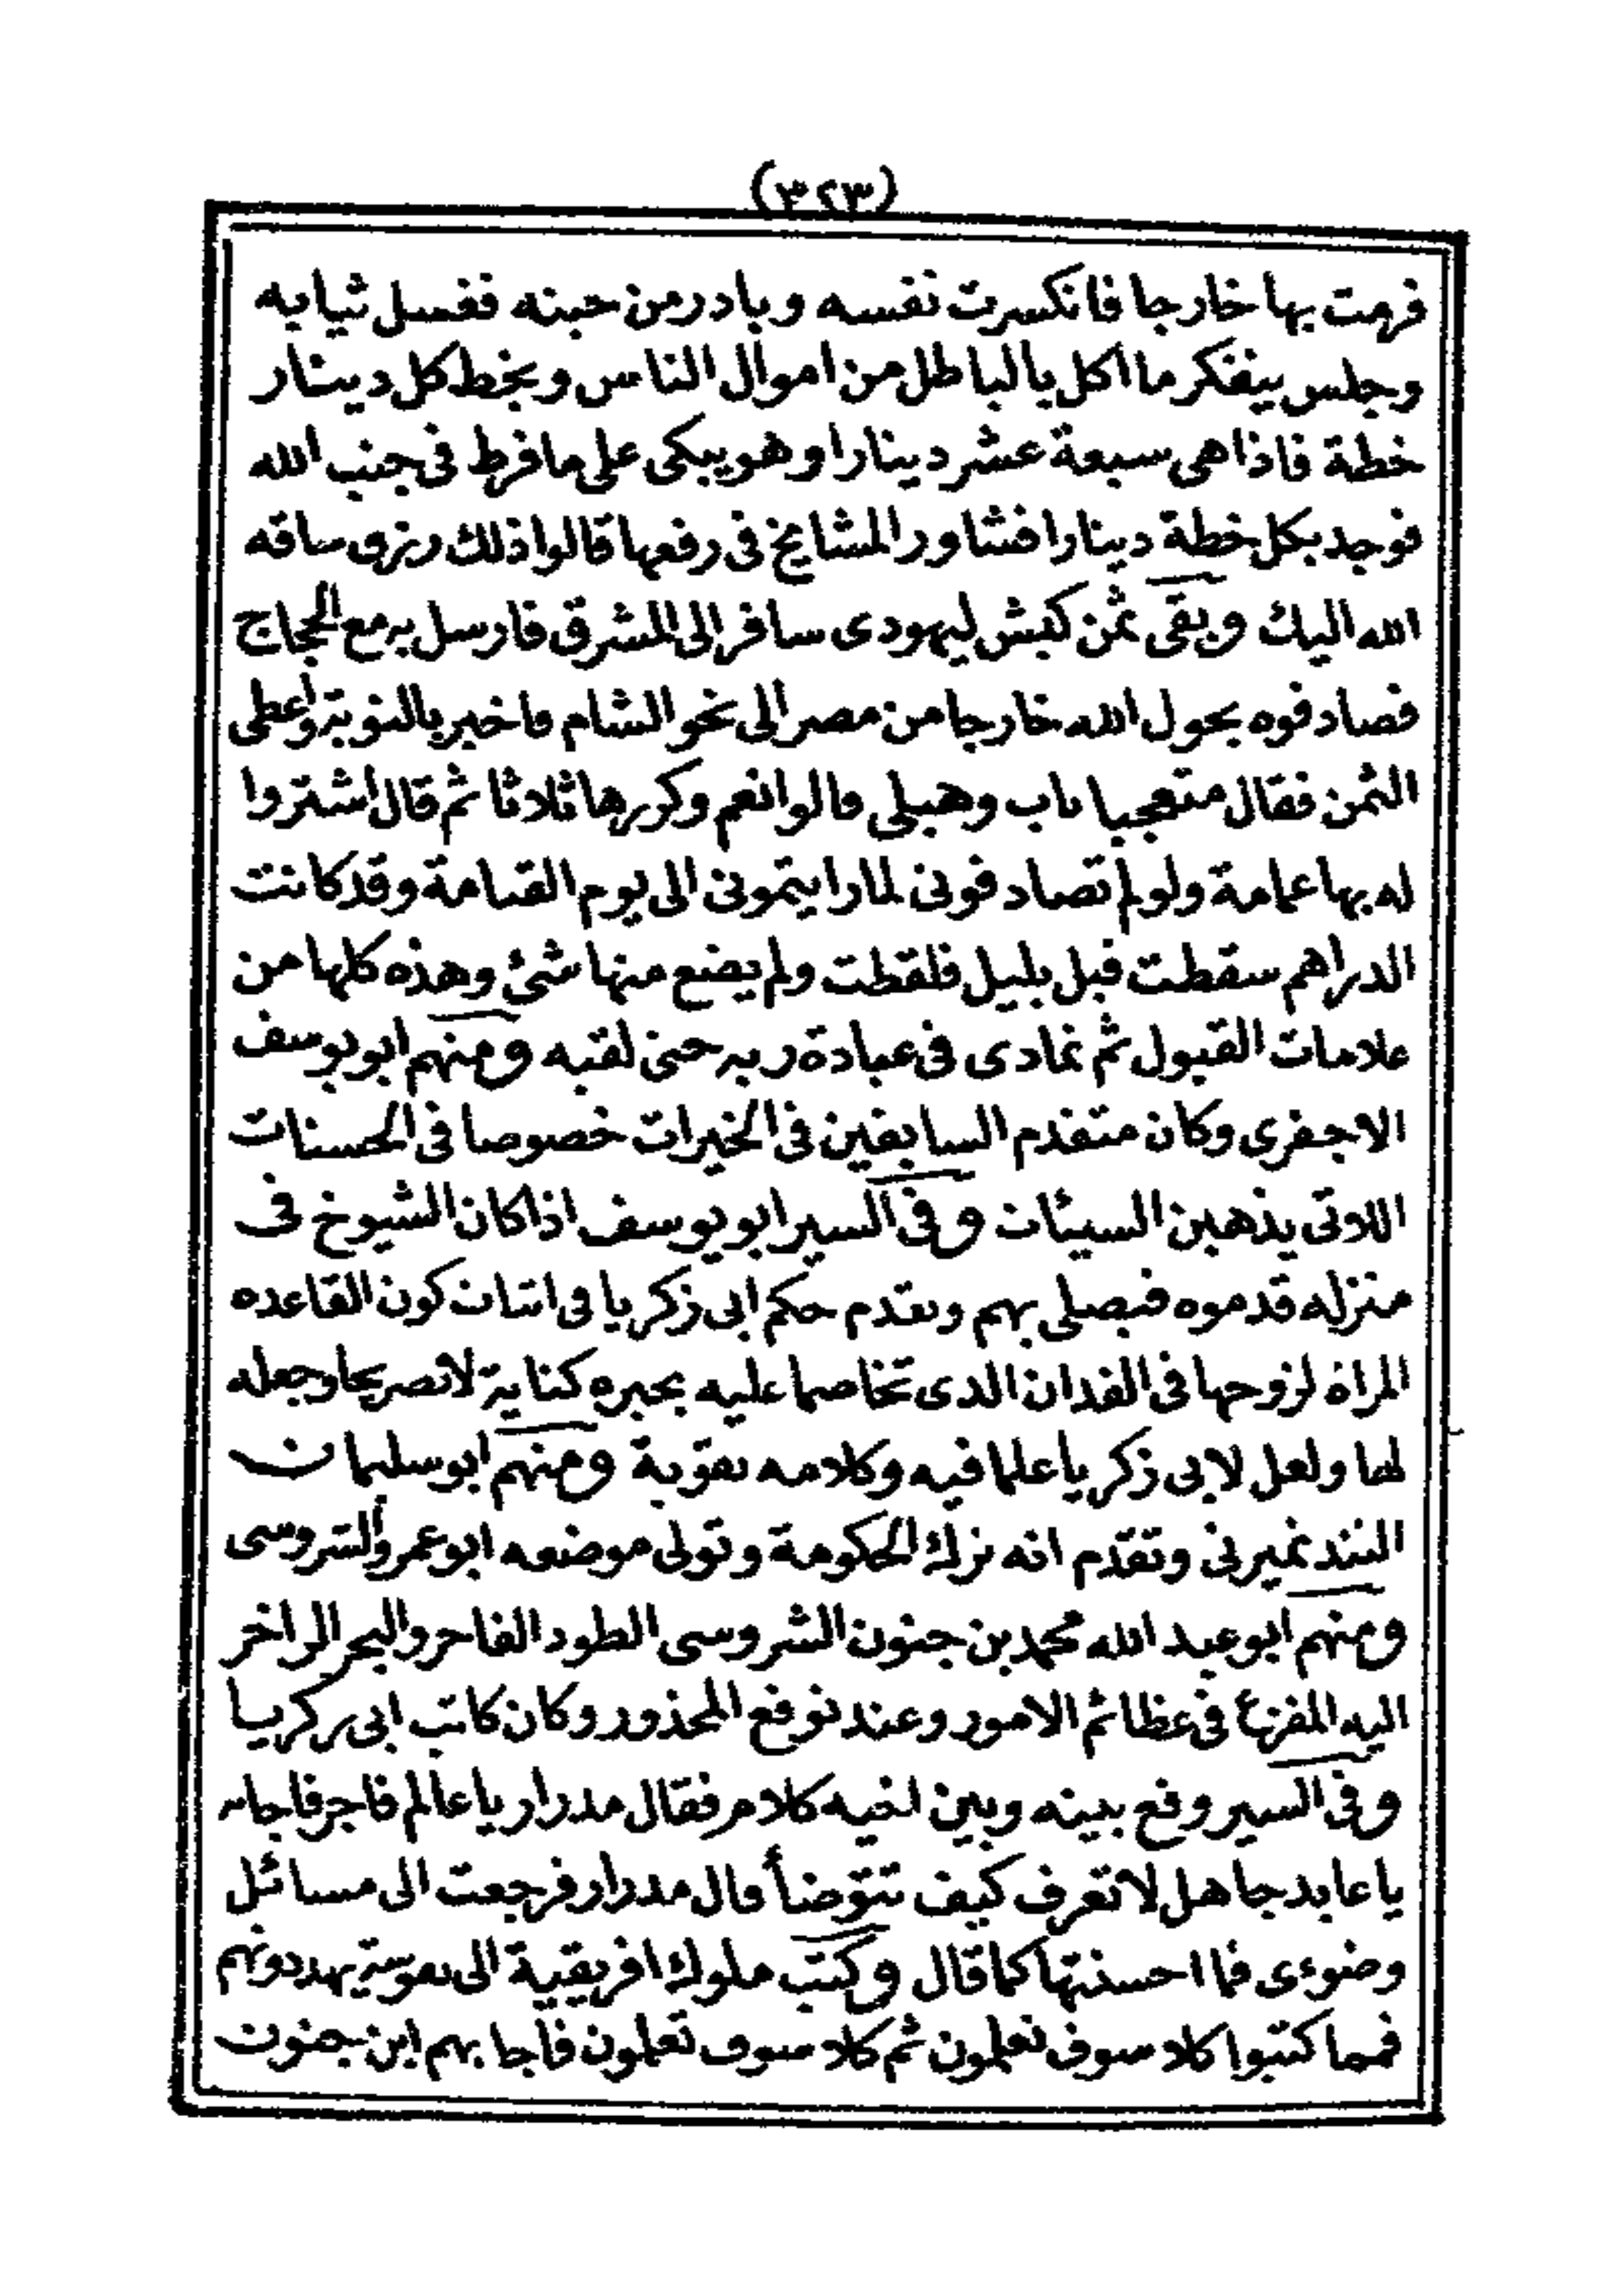 (٣٢٣)
فرمت بها خارجا فانكسرت نفسه وبادر من حينه فغسل ثيابه
وجلس يتفكر ما اكل بالباطل من اموال الناس ويخط كل دينار
خطة فاذا هى سبعة عشر دينارا وهو يبكى على ما فرط فى جنب الله
فوجد بكل خطة دينارا فشاور المشايخ فى رفعها قالوا ذلك رزق ساقه
الله اليك وبقى ثمن كبش ليهودى سافر الى المشرق فارسل به مع الحجاج
فصادفوه بحول الله خارجا من مصر الى نحو الشام فاخبر بالتوبة واعطى
الثمن فقال متعجبا تاب وهبلى قالوا نعم وكررها ثلاثا ثم قال اشتروا
له بها عمامة ولو لم تصادفونى لما رايتمونى الى يوم القيامة وقد كانت
الدراهم سقطت قبل بليل فلقطت ولم يضع منها شئ وهذه كلها من
علامات القبول ثم تمادى فى عبادة ربه حتى لقيه ومنهم ابو يوسف
الاجفرى وكان متقدم السابقين فى الخيرات خصوصا فى الحسنات
اللاتى يذهبن السيئات وفى السير ابو يوسف اذا كان الشيوخ فى
منزله قدموه فيصلى بهم وتقدم حكم ابى زكريا فى اثبات كون القاعده
المراة لزوجها فى الفدان الذى تخاصما عليه بحيره كناية لا تصريحا وجعله
لها ولعل لابى زكريا علما فيه وكلامه تقوية ومنهم ابو سليمان
التندنميرتى وتقدم انه ترك الحكومة وتولى موضعه ابو عمرو الشروسى
ومنهم ابو عبد الله محمد بن جنون الشروسى الطود الفاخر والبحر الزاخر
اليه المفزع فى عظائم الامور وعند توقع المحذور وكان كاتب ابى زكريا
وفى السير وقع بينه وبين اخيه كلام فقال مدرار يا عالم فاجر فاجابه
يا عابد جاهل لا تعرف كيف تتوضأ قال مدرار فرجعت الى مسائل
وضوءى فما احسنتها كما قال وكتب ملوك افريقية الى نفوسة يهددونهم
فمما كتبوا كلا سوف تعلمون ثم كلا سوف تعلمون فاجابهم ابن جنون